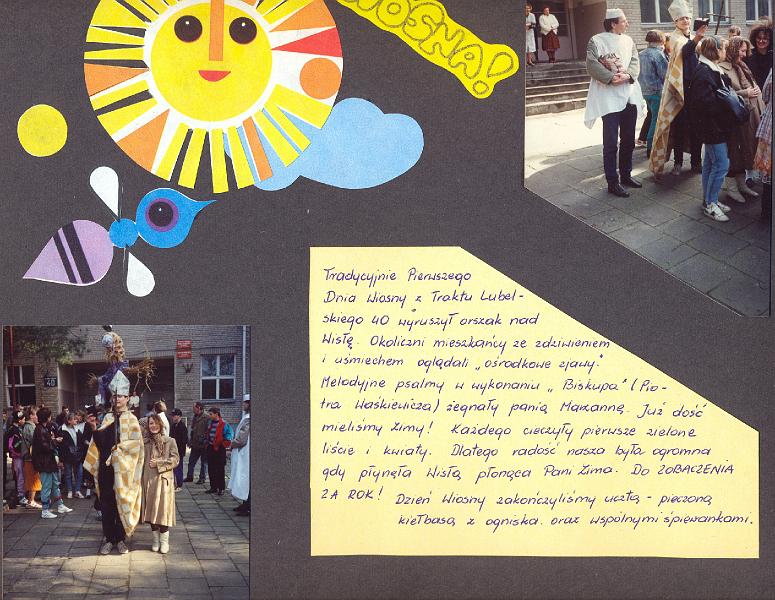 WIOSNA!
40
Tradycyjnie Pierwszego
Dnia Wiosny z Traktu Lubel-
skiego 40 wyruszył orszak nad
Wisłę. Okoliczni mieszkańcy ze zdziwieniem
i uśmiechem oglądali „ośrodkowe zjawy."
Melodyjne psalmy w wykonaniu „Biskupa" (Pio-
tra Waśkiewicza) żegnały panią Marzannę. Już dość
mieliśmy zimy! Każdego cieszyły pierwsze zielone
liście i kwiaty. Dlatego radość nasza była ogromna
gdy płynęła Wisłą płonąca Pani Zima. Do ZOBACZENIA
ZA ROK! Dzień Wiosny zakończyliśmy ucztą - pieczoną
kiełbasą z ogniska oraz wspólnymi śpiewankami.